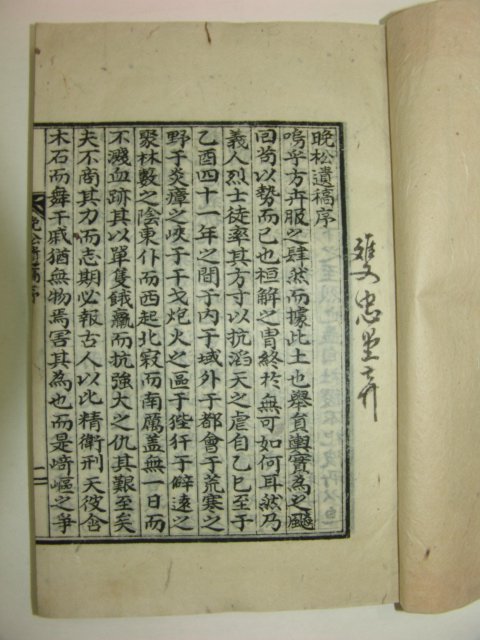 雙忠堂弆
晚松遺稿序
嗚乎方卉服之肆然而據此土也舉育輿實為之颺
回苟以勢而已也桓解之冑終於無可如何耳然乃
義人烈士徒率其方寸以抗滔天之虐自乙巳至于
乙酉四十一年之間于內于域外于都會于荒寒之
野于炎瘴之峽于干戈炮火之區于狴犴于僻遠之
聚林藪之陰東仆而西起北寂而南厲蓋無一日而
不濺血跡其以單隻餓羸而抗強大之仇其艱至矣
夫不商其力而志期必報古人以比精衛刑天彼含
木石而舞干戚猶無物焉害其為也而是﨑嶇之爭
晚松遺稿序
一